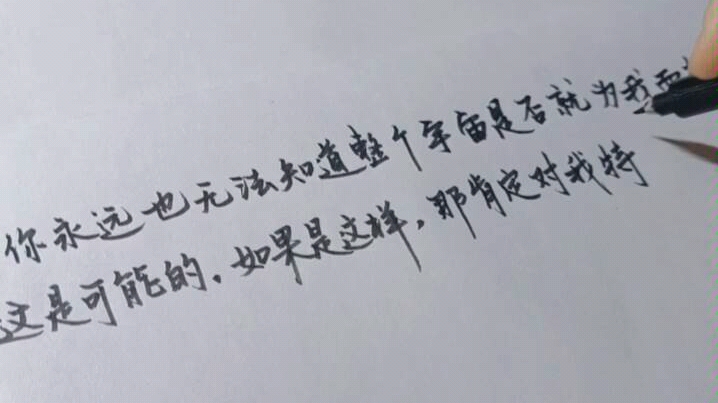 你永远也无法知道整个宇宙是否就为我而
这是可能的，如果是这样，那肯定对我特